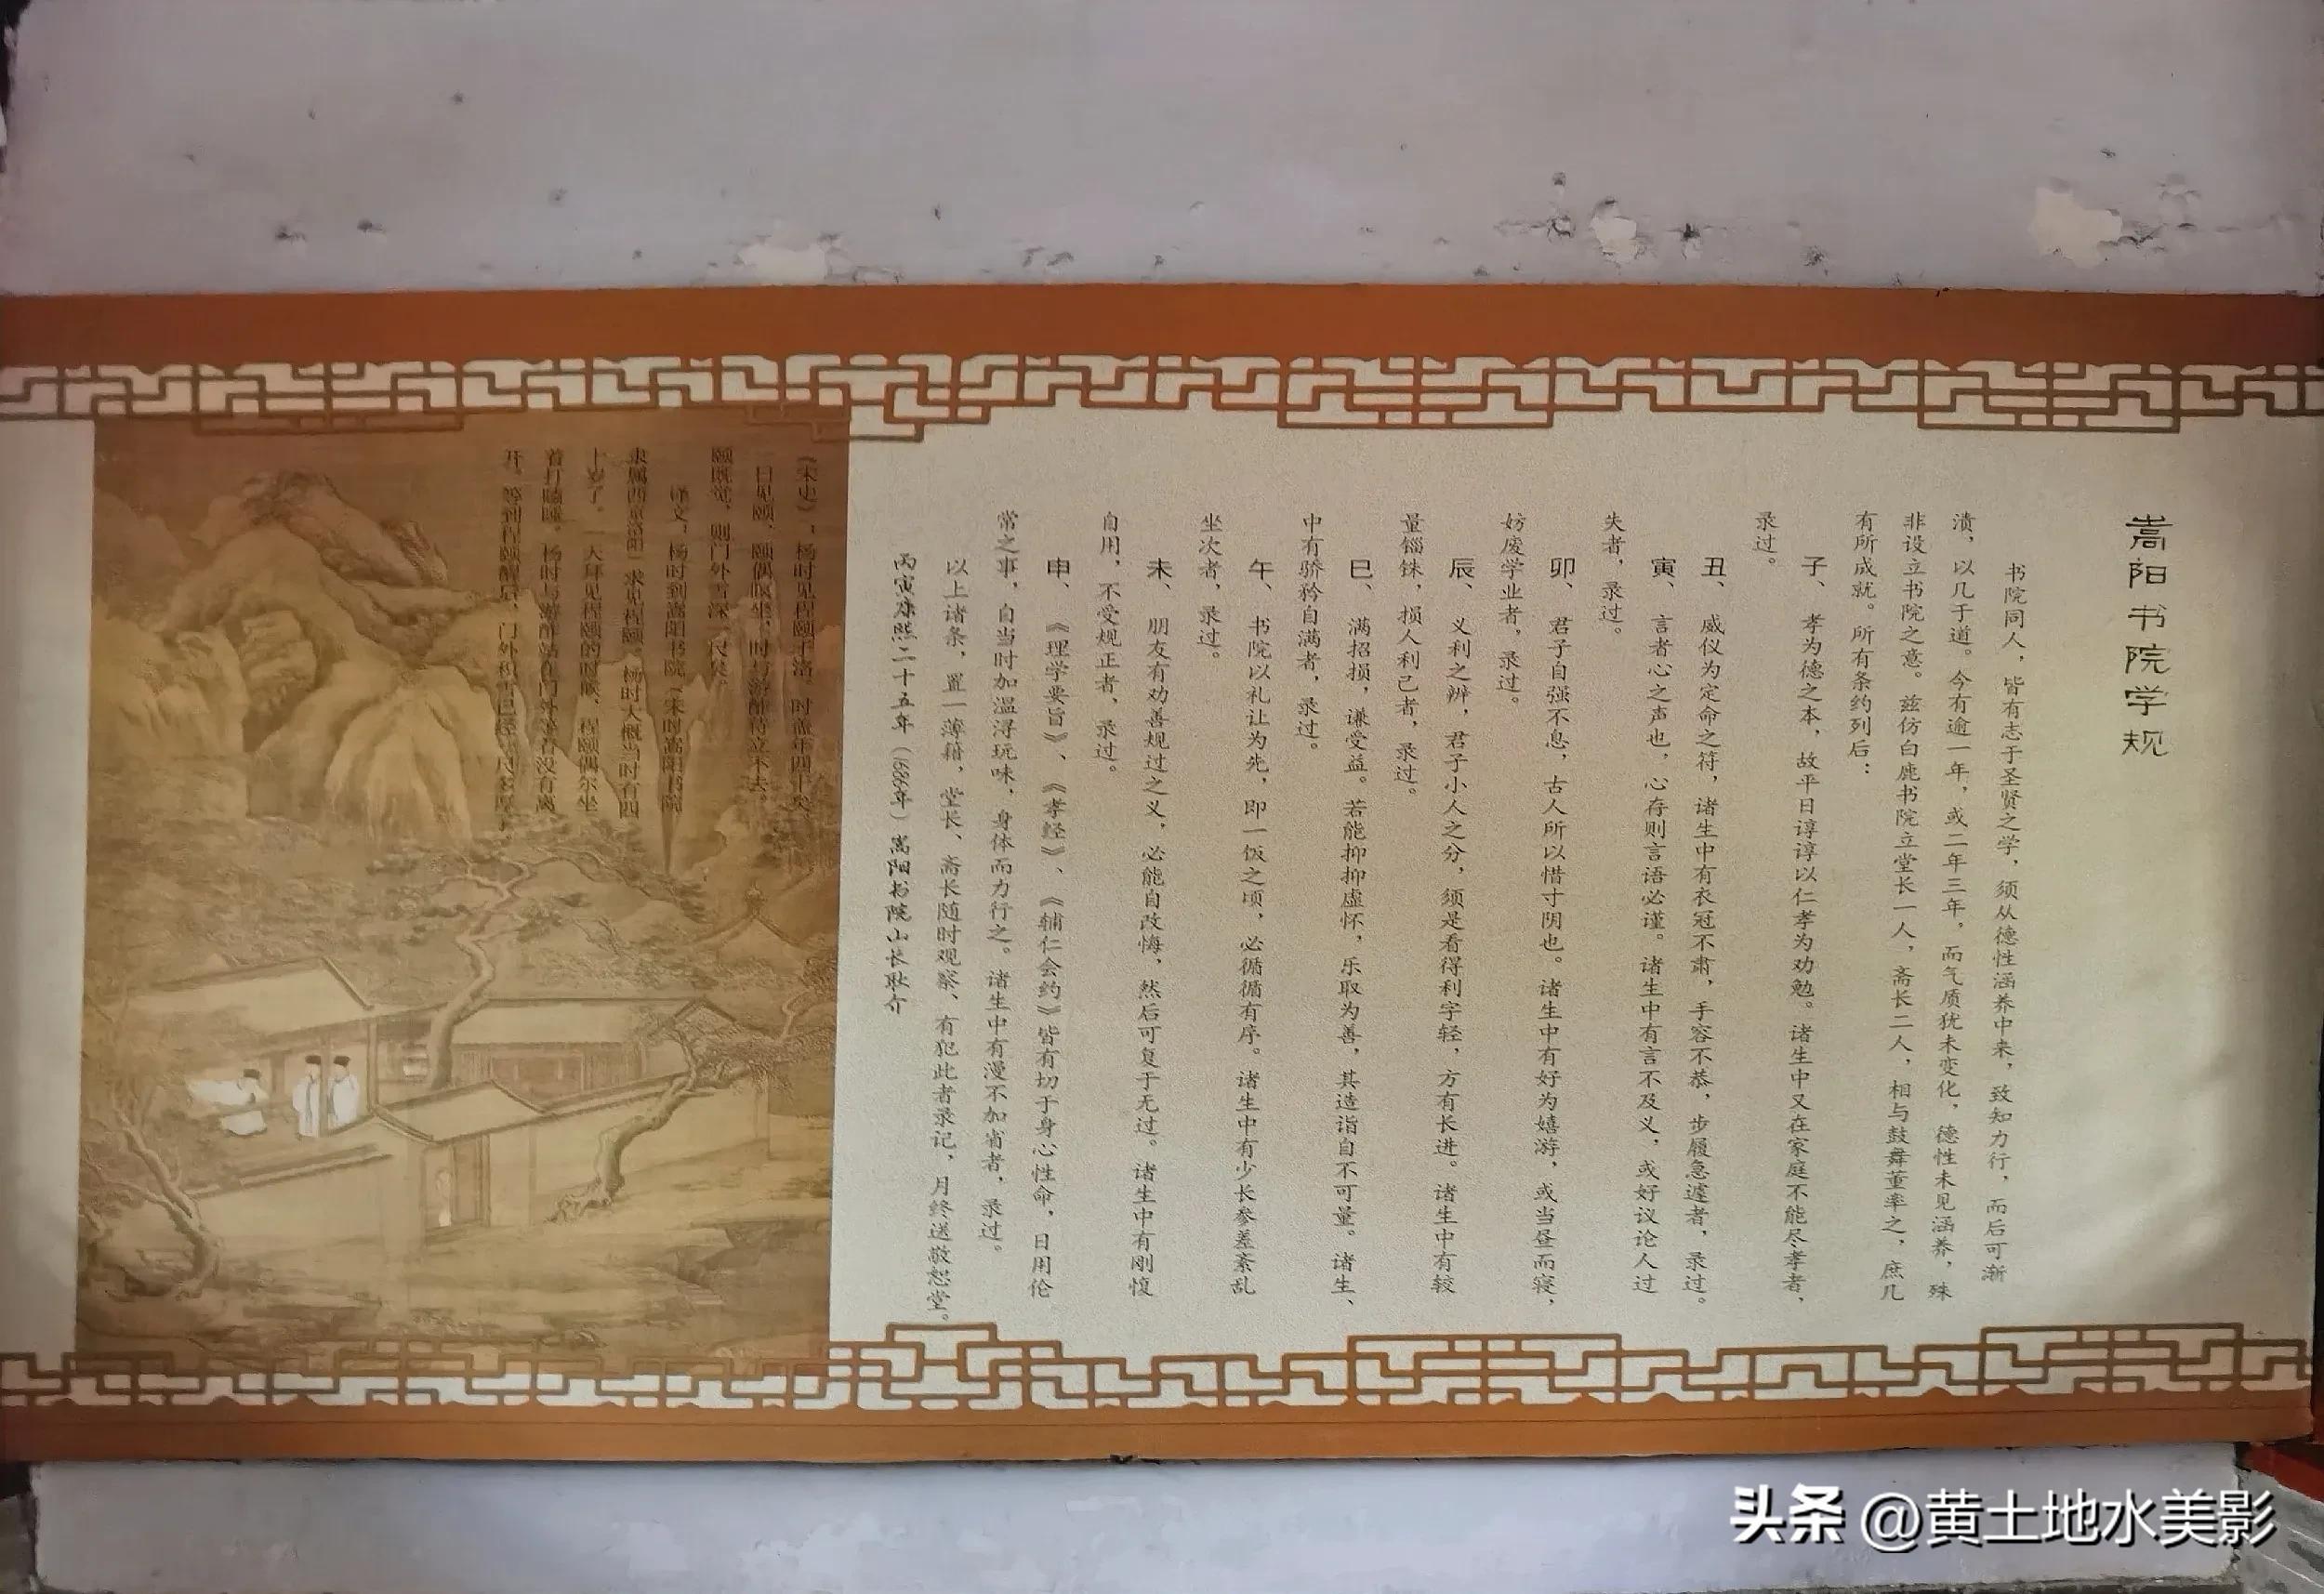 嵩阳书院学规
书院同人，皆有志于圣贤之学，须从德性涵养中来，致知力行，而后可渐
渍，以几于道。今有逾一年，或二年三年，而气质犹未变化，德性未见涵养，殊
非设立书院之意。兹仿白鹿书院立堂长一人，斋长二人，相与鼓舞董率之，庶几
有所成就。所有条约列后：
子、孝为德之本，故平日谆谆以仁孝为劝勉。诸生中又在家庭不能尽孝者，
录过。
丑、威仪为定命之符，诸生中有衣冠不肃，手容不恭，步履急遽者，录过。
寅、言者心之声也，心存则言语必谨。诸生中有言不及义，或好议论人过
失者，录过。
卯、君子自强不息，古人所以惜寸阴也。诸生中有好为嬉游，或当昼而寝，
妨废学业者，录过。
辰、义利之辨，君子小人之分，须是看得利字轻，方有长进。诸生中有较
量锱铢，损人利己者，录过。
巳、满招损，谦受益。若能抑抑虚怀，乐取为善，其造诣自不可量。诸生、
中有骄矜自满者，录过。
午、书院以礼让为先，即一饭之顷，必循循有序。诸生中有少长参差紊乱
坐次者，录过。
未、朋友有劝善规过之义，必能自改悔，然后可复于无过。诸生中有刚愎
自用，不受规正者，录过。
申、《理学要旨》、《孝经》、《辅仁会约》皆有切于身心性命，日用伦
常之事，自当时加温浔玩味，身体而力行之。诸生中有漫不加省者，录过。
以上诸条，置一薄籍，堂长、斋长随时观察、有犯此者录记，月终送敬恕堂。
丙寅康熙二十五年（1686年）嵩阳书院山长耿介
《宋史》：杨时见程颐于洛，时盖年四十矣，
一日见颐，颐偶瞑坐，时与游酢侍立不去。
颐既觉，则门外雪深一尺矣。
译文：杨时到嵩阳书院（宋时嵩阳书院
隶属西京洛阳）求见程颐。杨时大概当时有四
十岁了。一天拜见程颐的时候，程颐偶尔坐
着打瞌睡。杨时与游酢站在门外等着没有离
开。等到程颐醒后，门外积雪已经一尺多厚
头条 @黄土地水美影